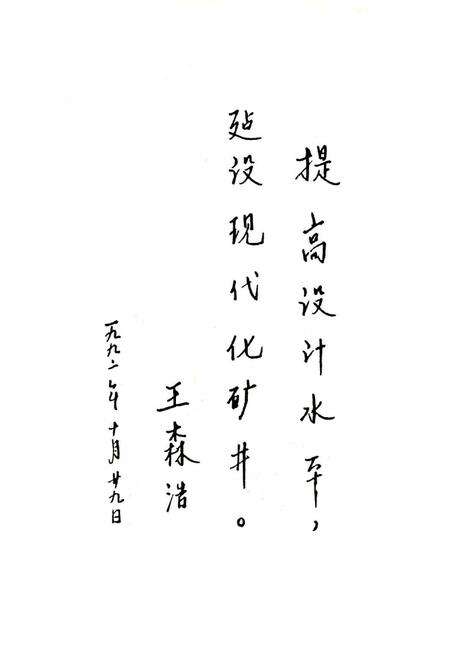 提高设计水平，
建设现代化矿井。
王森浩
一九九二年十月廿九日